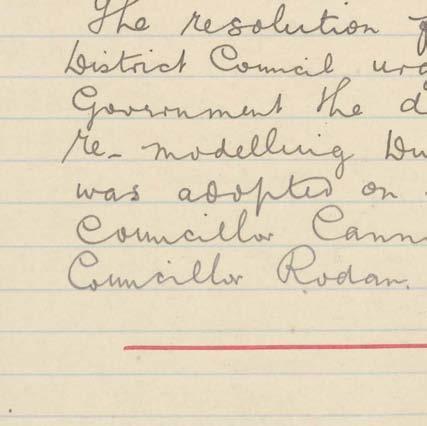 The resolution
District Council
Government the
re-modelling
was adopted on
Councillor Cann
Councillor Rodan.